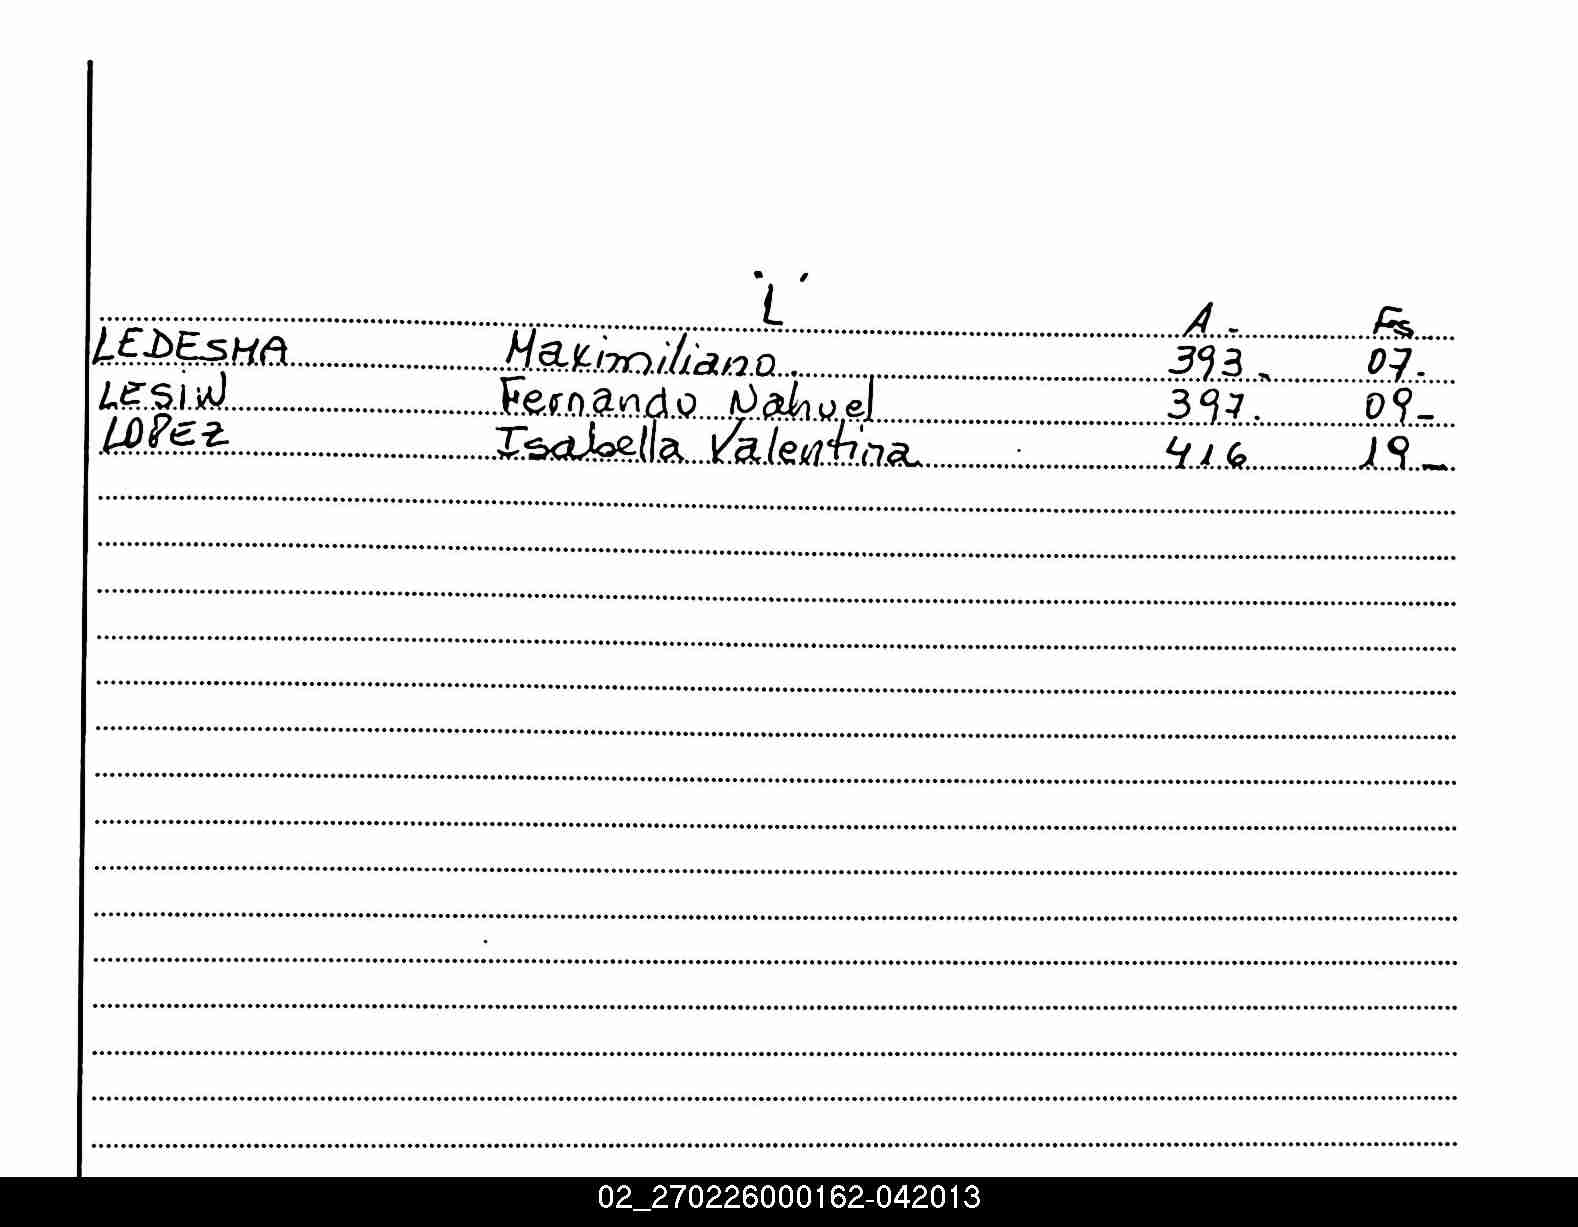 "L"
A.- Fs
LEDESMA Maximiliano. 393- 07-
LESIW Fernando Nahuel 397. 09-
LOPEZ Isabella Valentina 416 19-
02_270226000162-042013